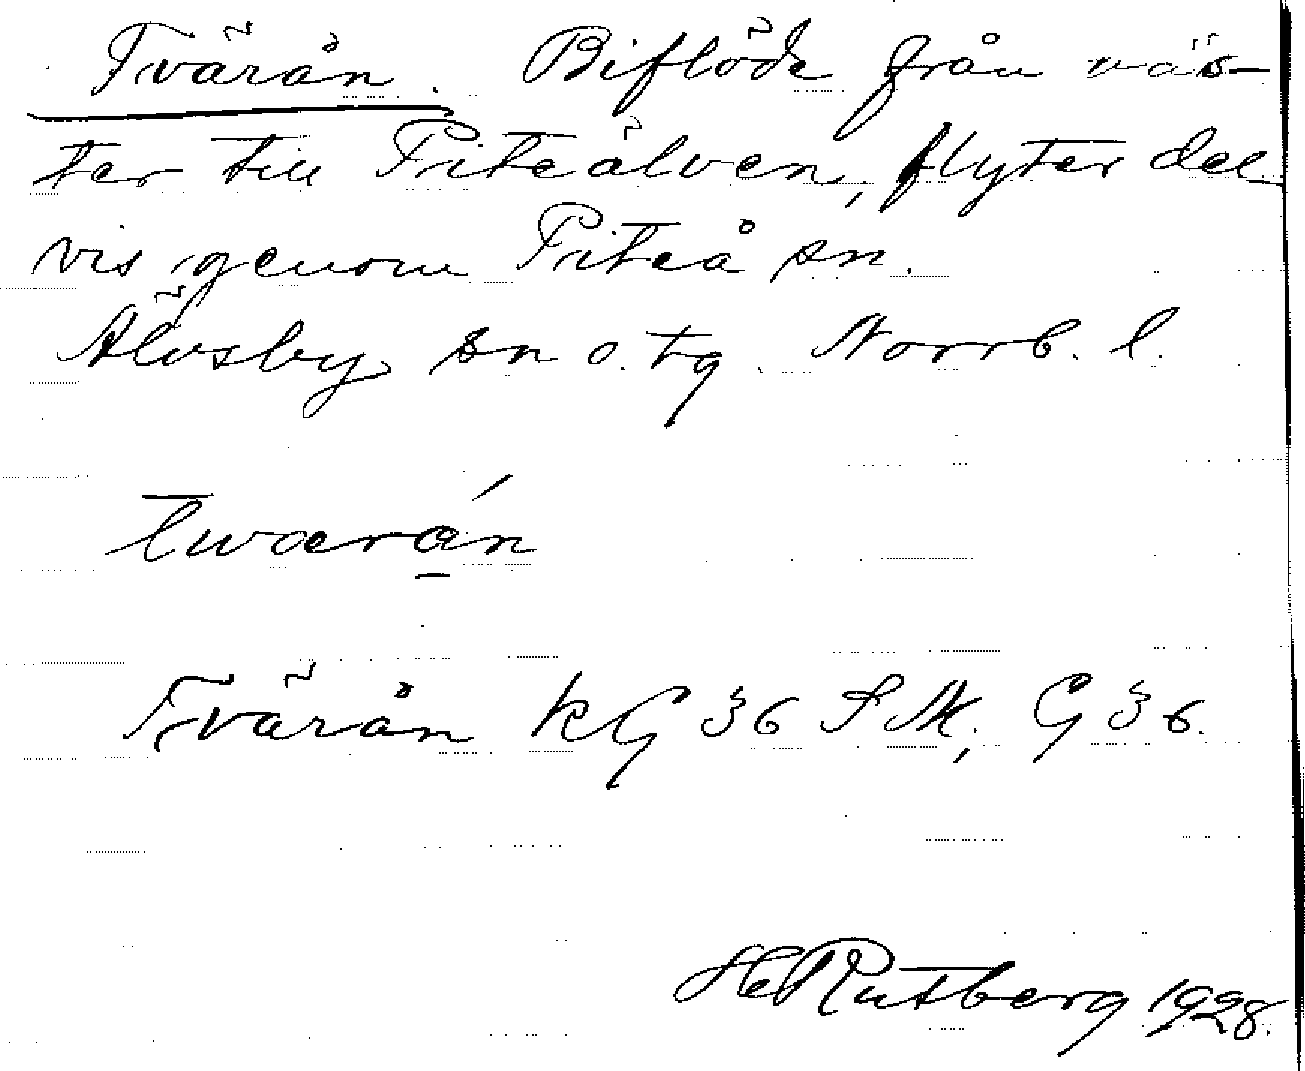 Tvärån. Biflöde från väs-
ter till Piteälven, flyter del-
vis genom Piteå sn.
Älvsby sn o. tg. Norrb. l.
Tværa̱ń
Tvärån KG 36 SM, G 36.
HeRutberg 1928.